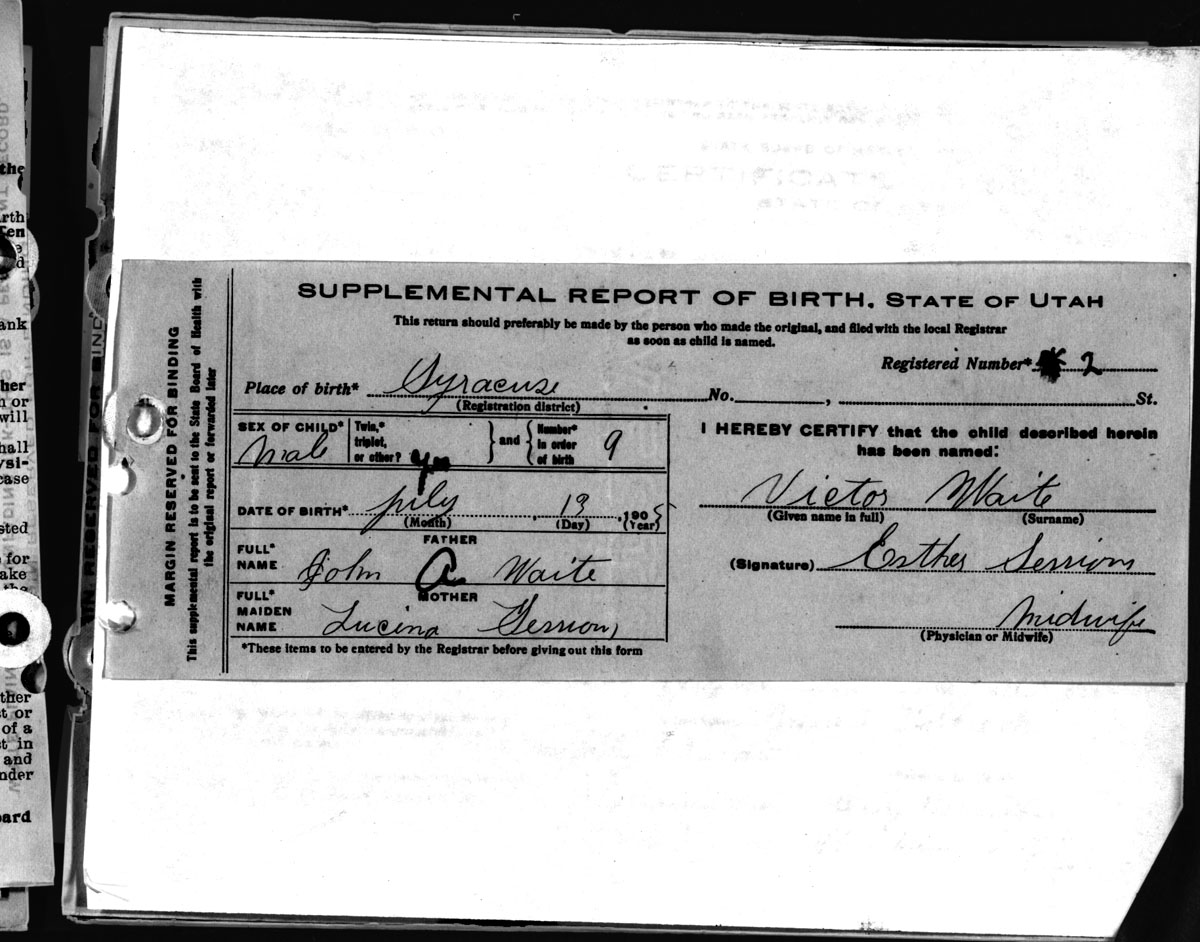 SUPPLEMENTAL REPORT OF BIRTH, STATE OF UTAH
This return should preferably be made by the person who made the original, and filed with the local Registrar
as soon as child is named.
Registered Number* 2
Place of birth* Syracuse No. , St.
(Registration district)
SEX OF CHILD* Male
Twin,* triplet, or other? yes
and
Number* in order of birth 9
DATE OF BIRTH* july 13, 1905
(Month) (Day) (Year)
FATHER
FULL* NAME John A Waite
MOTHER
FULL* MAIDEN NAME Lucina Sessions
*These items to be entered by the Registrar before giving out this form
I HEREBY CERTIFY that the child described herein
has been named:
Victor Waite
(Given name in full) (Surname)
(Signature) Esther Sessions
Midwife
(Physician or Midwife)
MARGIN RESERVED FOR BINDING
This supplemental report is to be sent to the State Board of Health with
the original report or forwarded later
the
ank
will
case
for
of a
and